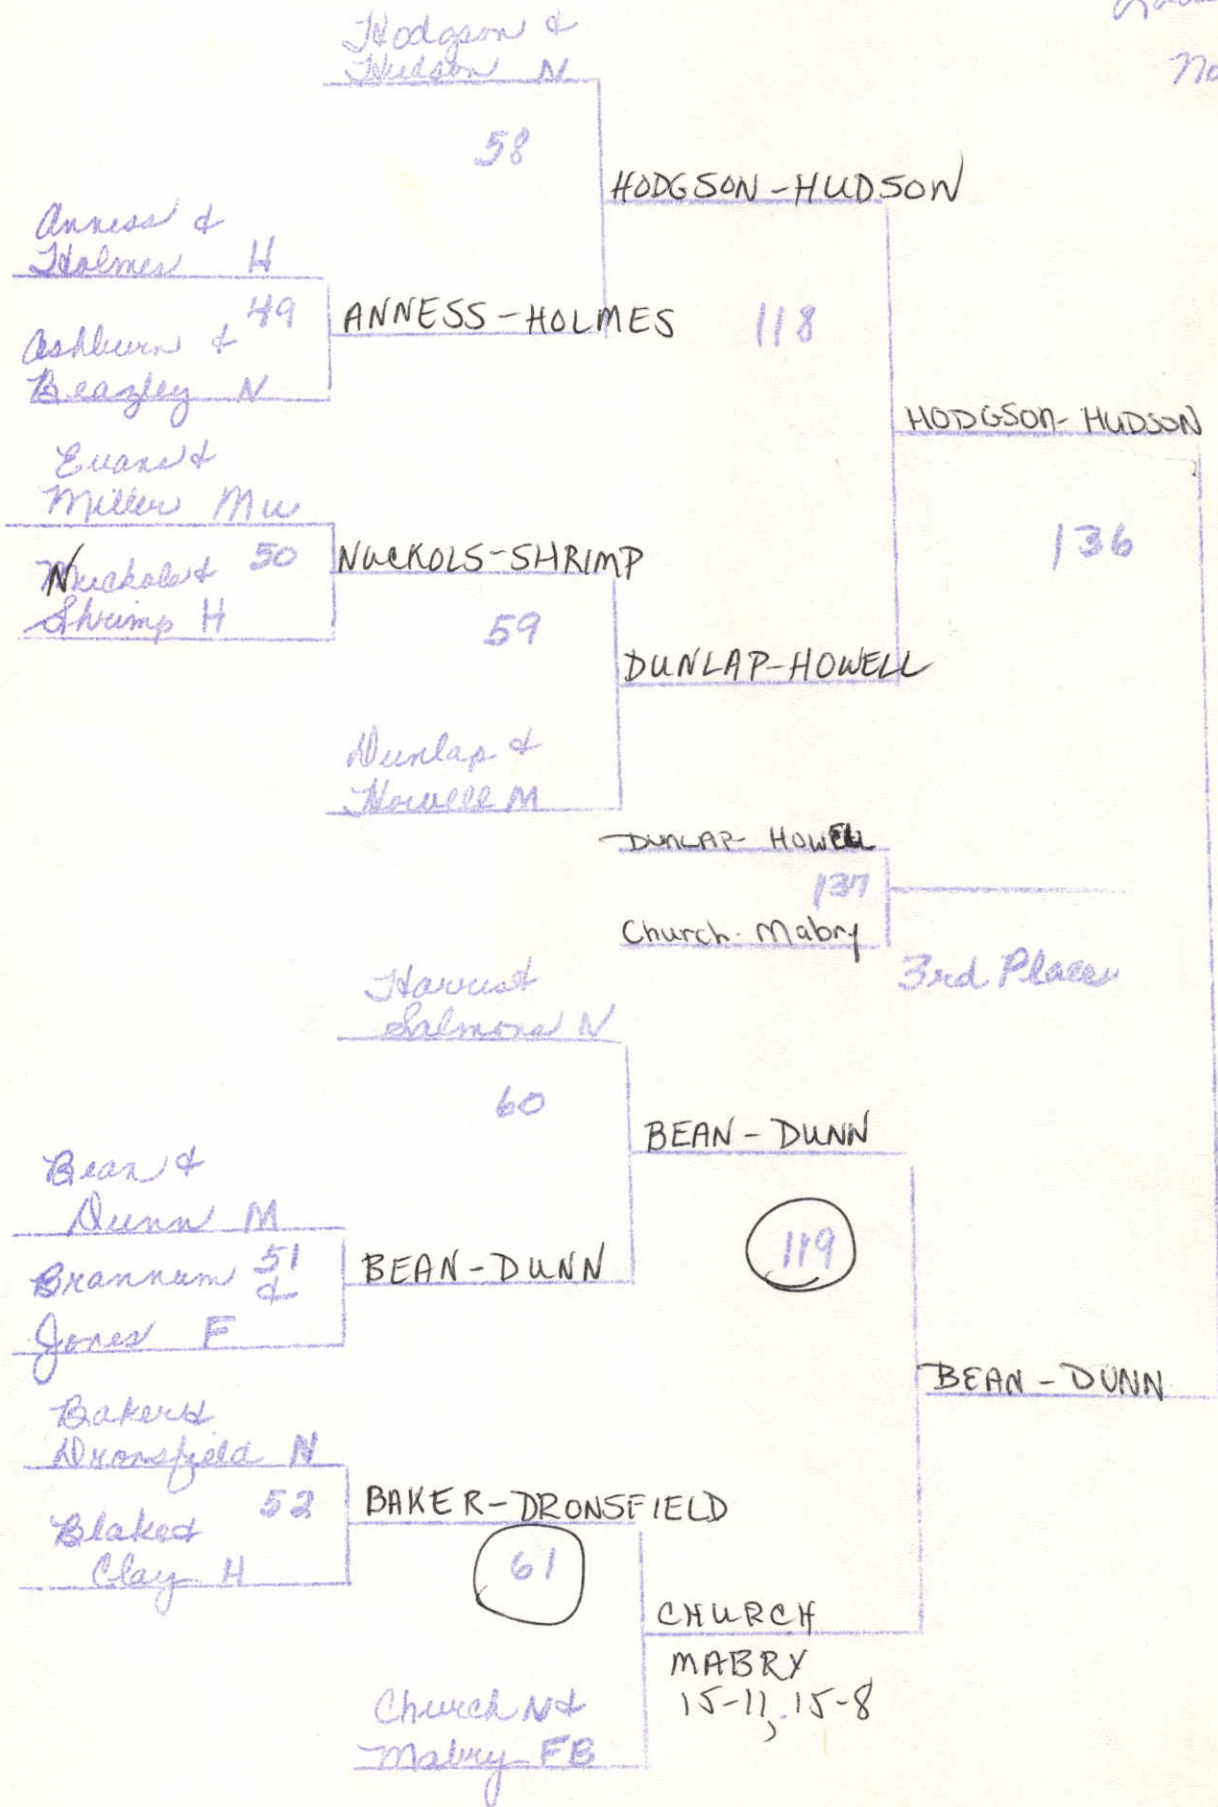 Hodgson &
Hudson N
No
58
HODGSON-HUDSON
Anness &
Holmes H
49
ANNESS-HOLMES
118
Ashburn &
Beazley N
HODGSON-HUDSON
Evans &
Miller Mu
136
50
NUCKOLS-SHRIMP
Nuckols &
Shrimp H
59
DUNLAP-HOWELL
Dunlap &
Howell M
DUNLAP-HOWELL
137
Church-Mabry
3rd Place
Harris &
Salmons N
60
BEAN-DUNN
Bean &
Dunn M
119
Brannum 51
&
BEAN-DUNN
Jones F
BEAN-DUNN
Baker &
Dronsfield N
52
BAKER-DRONSFIELD
Blake &
Clay H
61
CHURCH
MABRY
15-11, 15-8
Church N &
Mabry FB